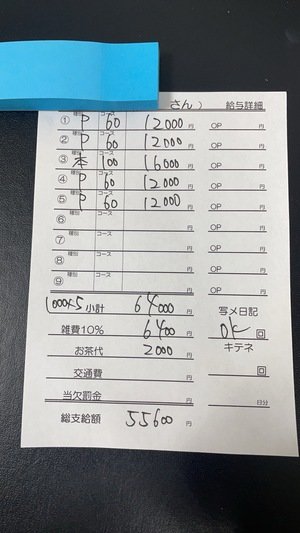 さん） 給与詳細
① 種別 P コース 60 12000 円 OP 円
② 種別 P コース 60 12000 円 OP 円
③ 種別 本 コース 100 16000 円 OP 円
④ 種別 P コース 60 12000 円 OP 円
⑤ 種別 P コース 60 12000 円 OP 円
⑥ 種別 コース 円 OP 円
⑦ 種別 コース 円 OP 円
⑧ 種別 コース 円 OP 円
⑨ 種別 コース 円 OP 円
1000×5 小計 64000 円 写メ日記
雑費10% 6400 円 OK 回
お茶代 2000 円 キテネ
交通費 円 回
当欠罰金 円 日分
総支給額 55600 円